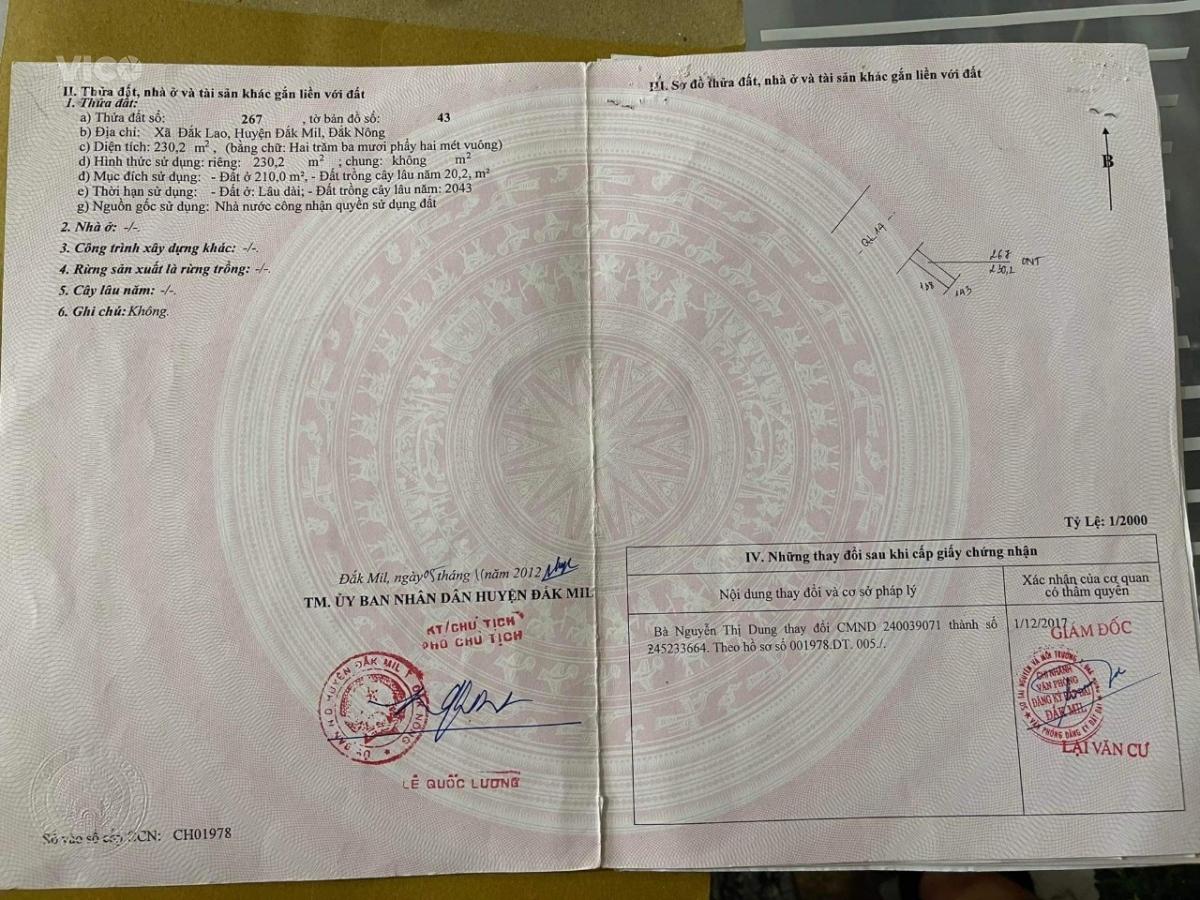 VICO
II. Thửa đất, nhà ở và tài sản khác gắn liền với đất
1. Thửa đất:
a) Thửa đất số: 267 , tờ bản đồ số: 43
b) Địa chỉ: Xã Đắk Lao, Huyện Đắk Mil, Đắk Nông
c) Diện tích: 230,2 m², (bằng chữ: Hai trăm ba mươi phẩy hai mét vuông)
d) Hình thức sử dụng: riêng: 230,2 m² ; chung: không m²
đ) Mục đích sử dụng: - Đất ở 210,0 m², - Đất trồng cây lâu năm 20,2, m²
e) Thời hạn sử dụng: - Đất ở: Lâu dài; - Đất trồng cây lâu năm: 2043
g) Nguồn gốc sử dụng: Nhà nước công nhận quyền sử dụng đất
2. Nhà ở: -/-.
3. Công trình xây dựng khác: -/-.
4. Rừng sản xuất là rừng trồng: -/-.
5. Cây lâu năm: -/-.
6. Ghi chú: Không.
Đắk Mil, ngày 05 tháng 11 năm 2012
TM. ỦY BAN NHÂN DÂN HUYỆN ĐẮK MIL
KT/CHỦ TỊCH
PHÓ CHỦ TỊCH
LÊ QUỐC LƯƠNG
Số vào sổ cấp GCN: CH01978
III. Sơ đồ thửa đất, nhà ở và tài sản khác gắn liền với đất
B
QL 14
267
230,2
ONT
138
143
Tỷ Lệ: 1/2000
IV. Những thay đổi sau khi cấp giấy chứng nhận
Nội dung thay đổi và cơ sở pháp lý
Xác nhận của cơ quan
có thẩm quyền
Bà Nguyễn Thị Dung thay đổi CMND 240039071 thành số
245233664. Theo hồ sơ số 001978.DT. 005./.
1/12/2017
GIÁM ĐỐC
CHI NHÁNH
VĂN PHÒNG
ĐĂNG KÝ ĐẤT ĐAI
ĐẮK MIL
LẠI VĂN CƯ